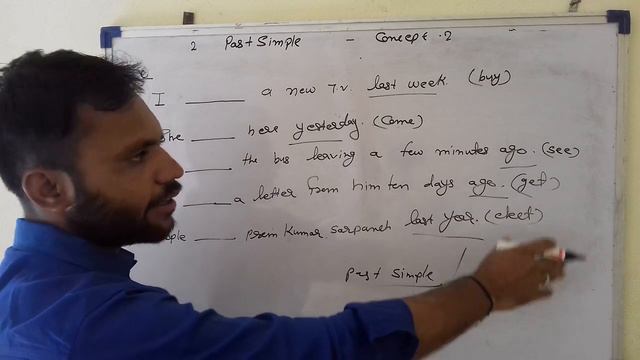 2 Past Simple - Concept.2
I ______ a new T.V. last week. (buy)
______ here yesterday. (Come)
______ the bus leaving a few minutes ago. (see)
______ a letter from him ten days ago. (get)
ople ______ prem Kumar Sarpanch last year. (elect)
past simple /